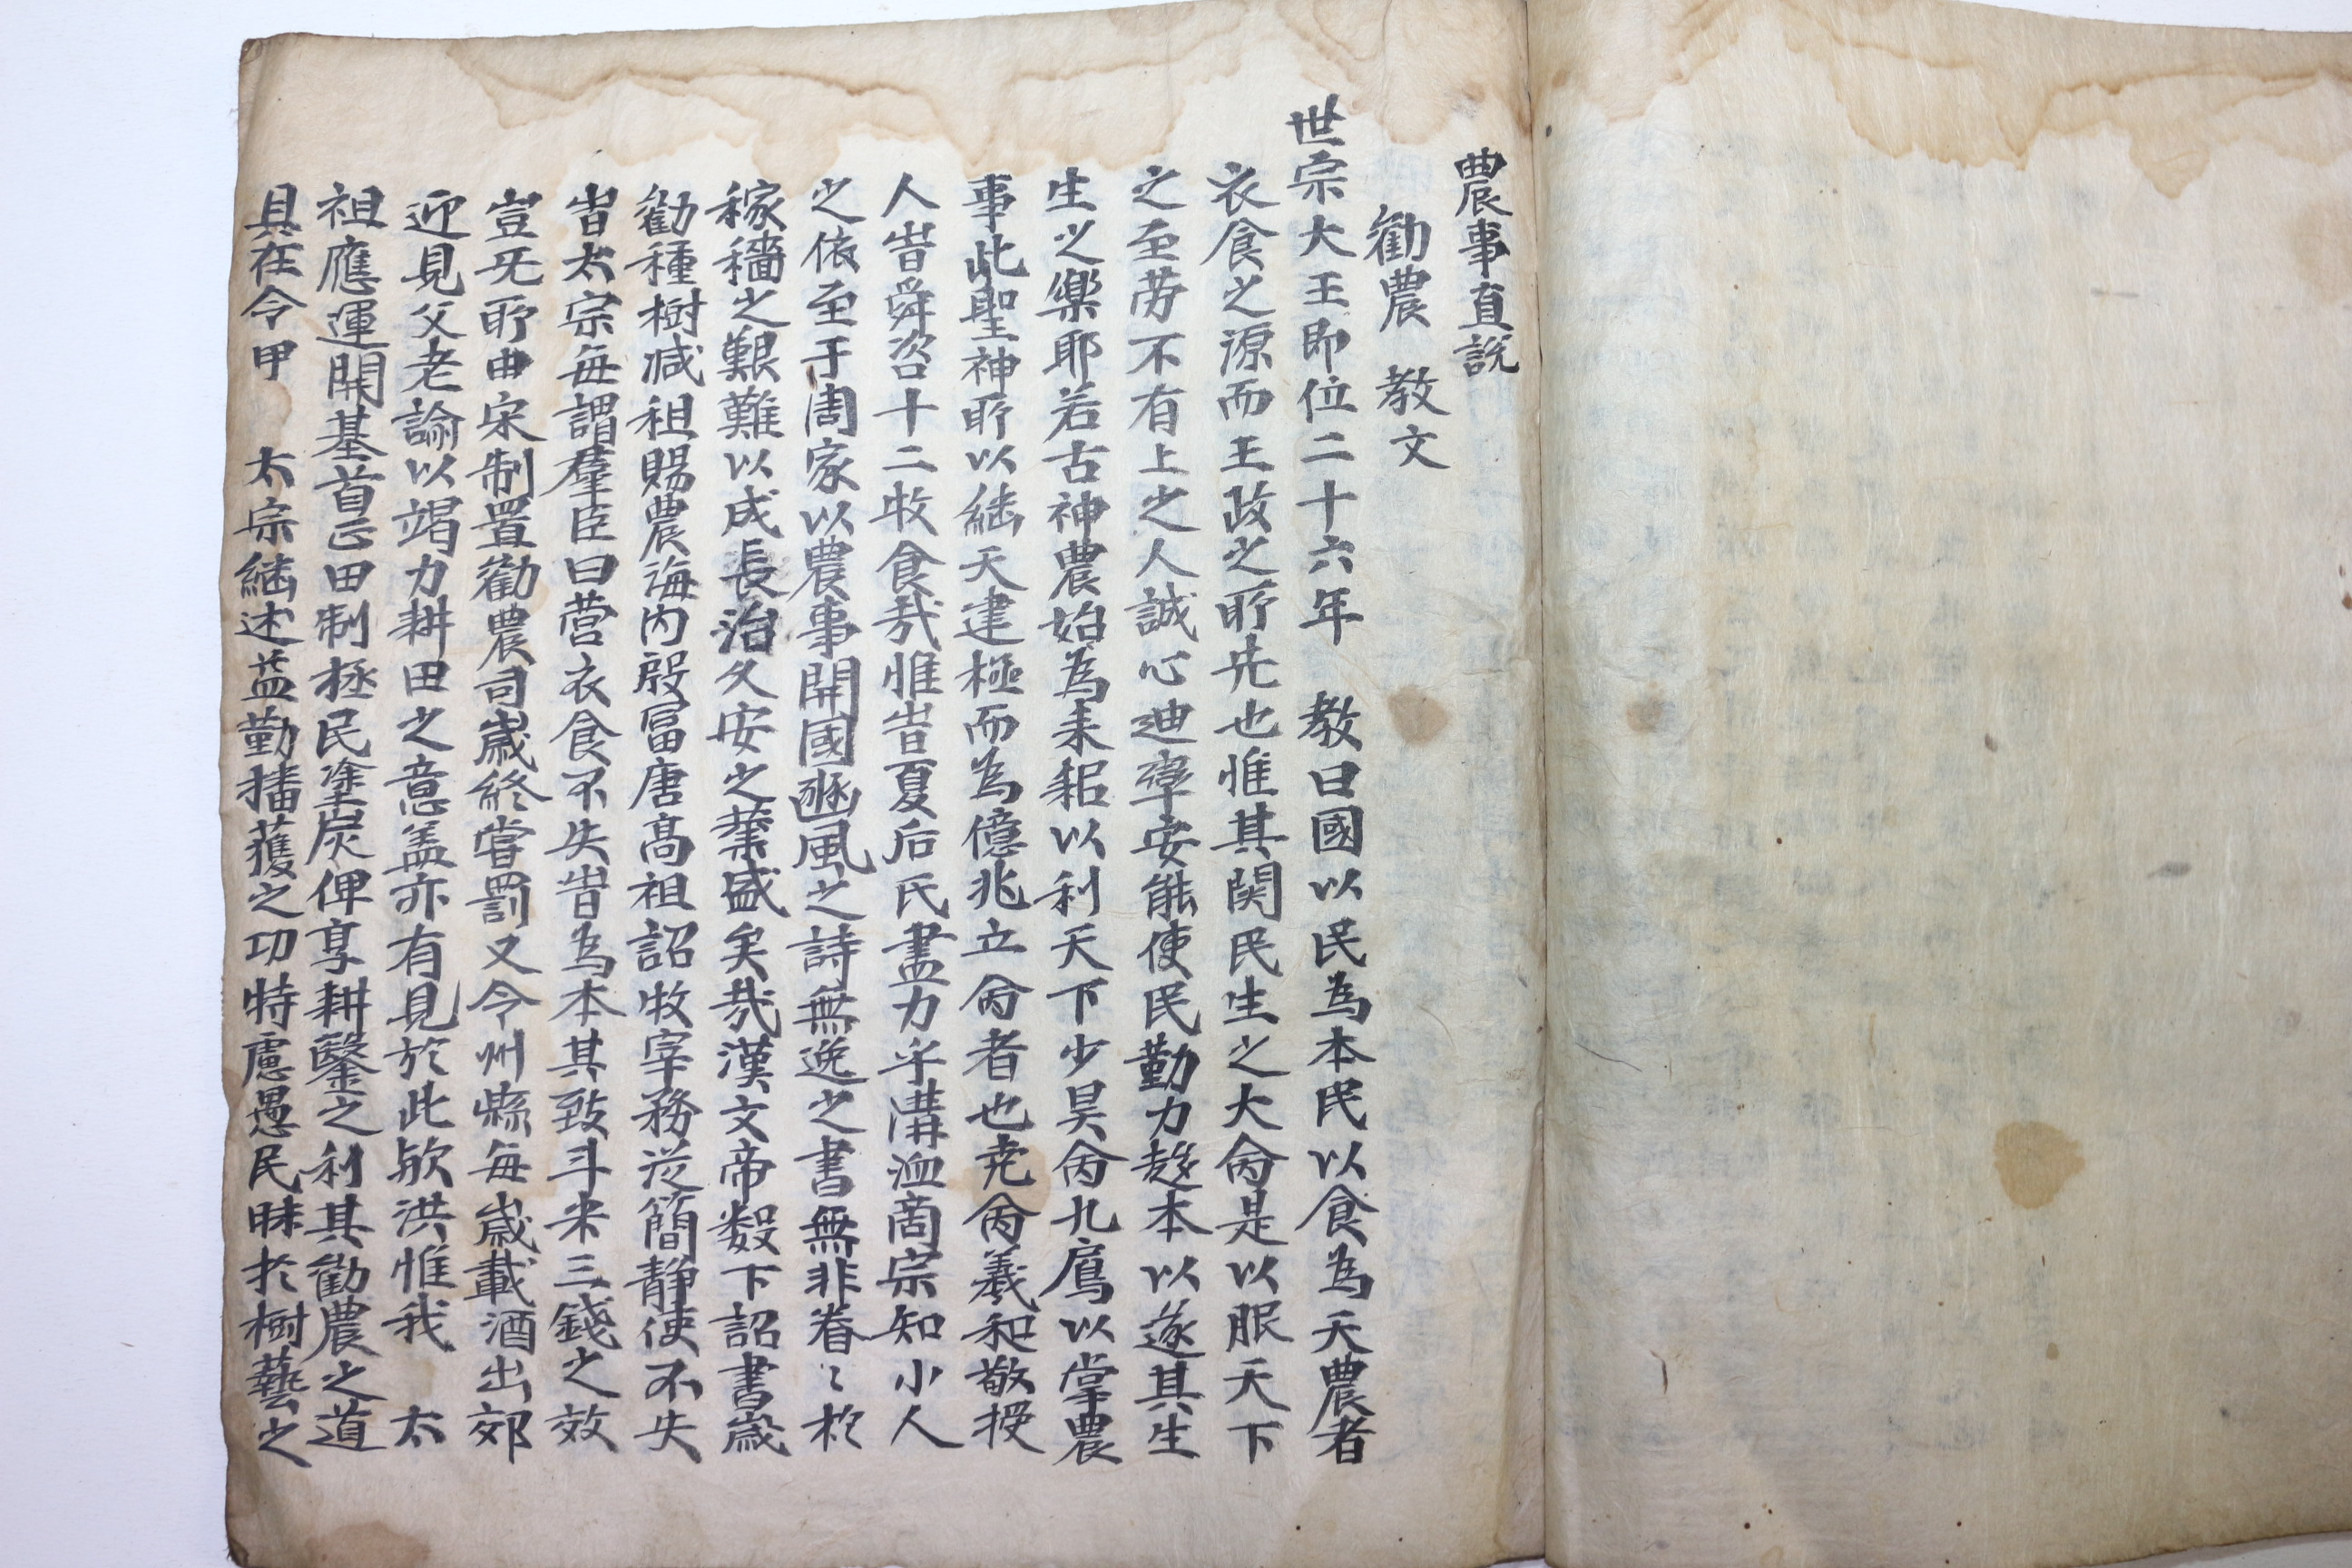 農事直說
勸農 教文
世宗大王卽位二十六年 教曰國以民為本民以食為天農者
衣食之源而王政之所先也惟其関民生之大命是以服天下
之至劳不有上之人誠心迪率安能使民勤力趍本以遂其生
生之樂耶若古神農始為耒耜以利天下少昊命九扈以掌農
事此聖神所以継天建極而為億兆立命者也堯命羲和敬授
人旹舜咨十二牧食㢤惟旹夏后氏盡力乎溝洫啇宗知小人
之依至于周家以農事開國豳風之詩無逸之書無非眷〻於
稼穡之艱難以成長治久安之業盛矣㢤漢文帝数下詔書歲
勸種樹减租賜農海內殷富唐高祖詔牧宰務從簡静使不失
旹太宗每謂羣臣曰营衣食不失旹為本其致斗米三錢之效
豈旡所由宋制置勸農司歲終甞罰又令州縣每歲載酒出郊
迎見父老諭以竭力耕田之意盖亦有見於此欤洪惟我 太
祖應運開基首正田制拯民塗炭俾享耕鑿之利其勸農之道
具在令甲 太宗継述益勤播穫之功特慮愚民昧於樹藝之